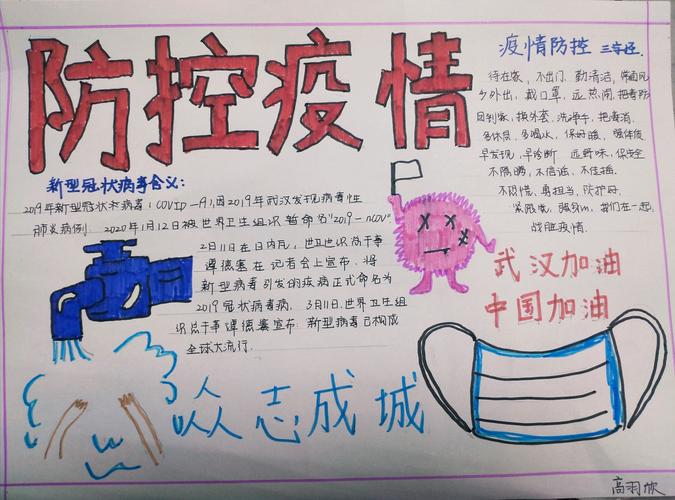 防控疫情
疫情防控 三字经
待在家，不出门，勤清洁，常通风
少外出，戴口罩，远热闹，把毒防
回到家，换外套，洗净手，把毒消
多休息，多喝水，保好暖，强体质
早发现，早诊断 远野味，保安全
不隐瞒，不信谣，不佳插，
不恐慌，勇担当，防护好
紧跟党，强身心，我们在一起，
战胜疫情．
新型冠状病毒含义：
2019年新型冠状病毒（COVID－19），因2019年武汉发现病毒性
肺炎病例 2020年1月12日被世界卫生组织暂命名"2019－nCOV"
2月11日在日内瓦，世卫组织总干事
谭德塞在记者会上宣布，将
新型病毒引发的疾病正式命名为
2019冠状病毒病，3月11日，世界卫生组
织总干事谭德塞宣布：新型病毒已构成
全球大流行．
武汉加油
中国加油
众志成城
高羽欣